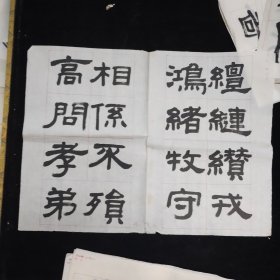 繵縺纘戎
鴻緒牧守
相係不殞
高問孝弟